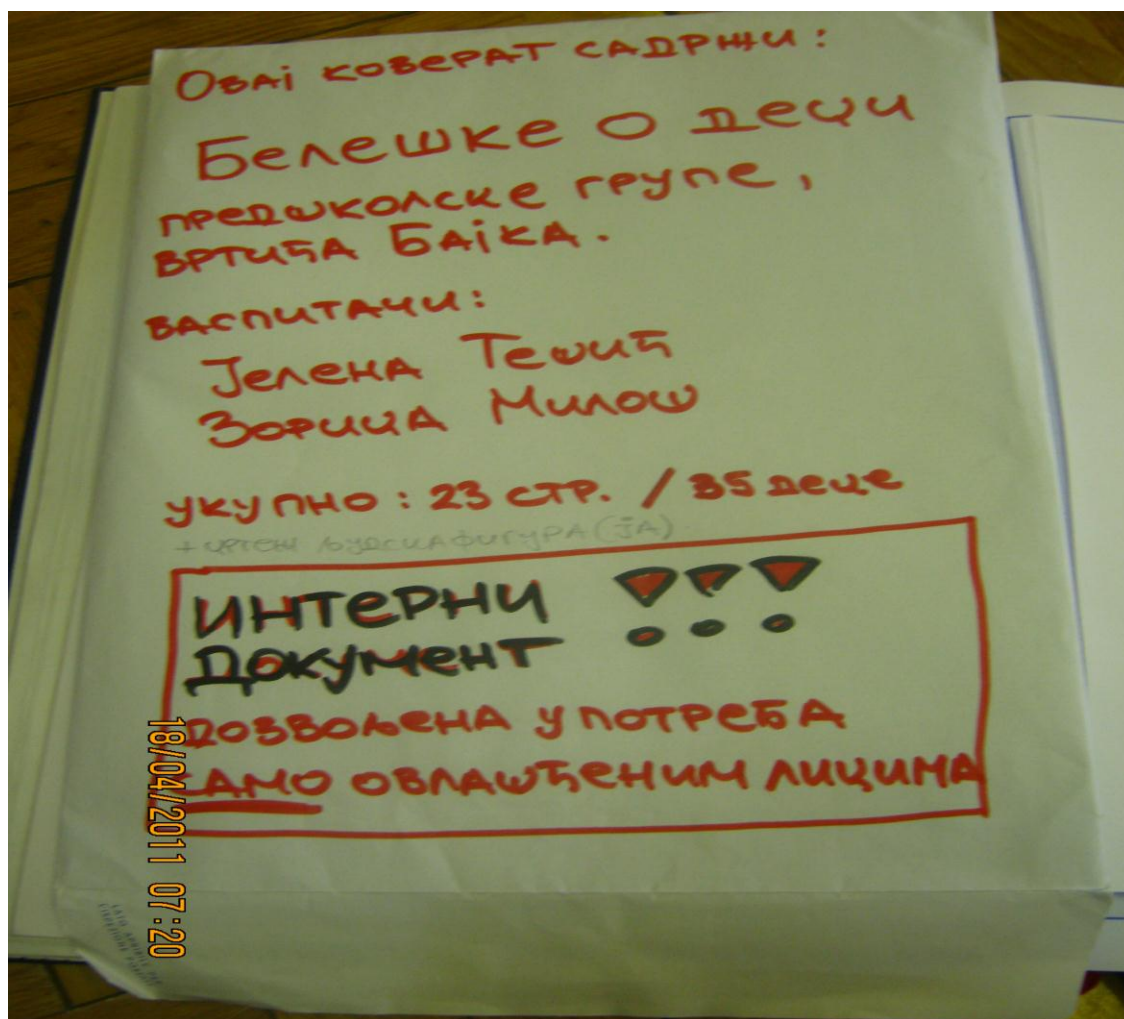 Овај коверат садржи:
Белешке о деци
предшколске групе,
вртића Бајка.
васпитачи:
Јелена Тешић
Зорица Милош
укупно: 23 стр. / 35 деце
+ цртеж људсиа фигура (ја)
ИНТЕРНИ !!!
ДОКУМЕНТ
дозвољена употреба
само овлашћеним лицима
18/04/2011 07:20
LATO APRIBILE PER
ISPEZIONE POSTALE